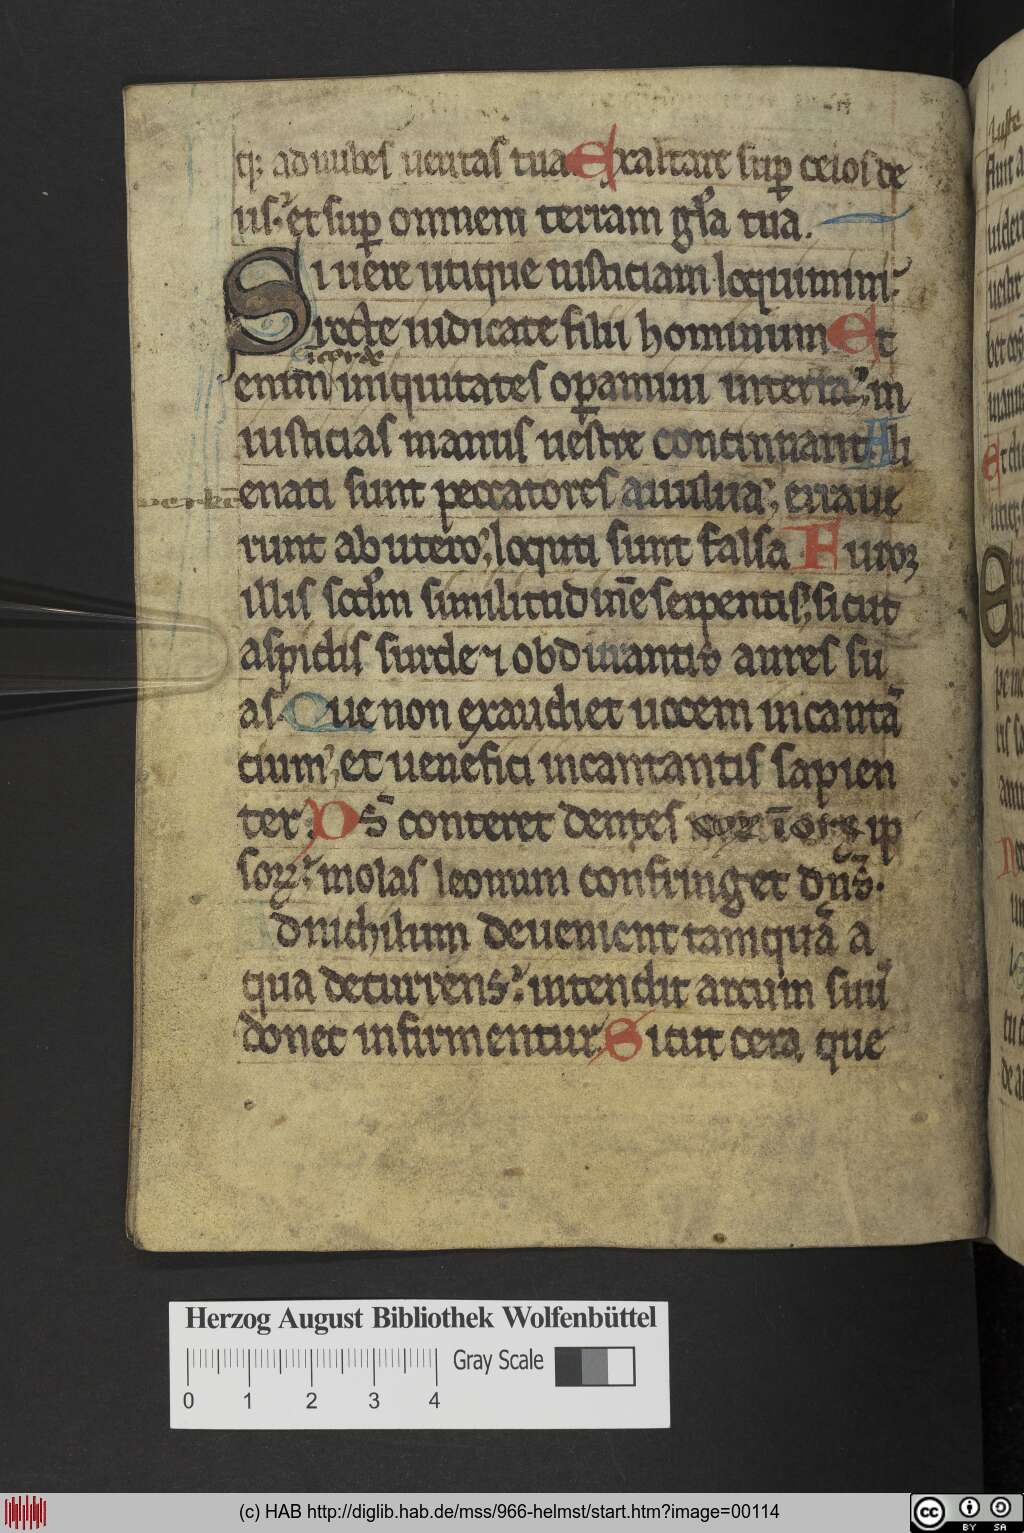 q; ad nubes ueritas tua Exaltare sup celos de
us. et sup omnem terram gl'a tua.
Si uere utique iusticiam loquimini.
recte iudicate filii hominum Et
i corde
enim iniquitates opamini in terra, in
iusticias manus uestre continnant Ali
enati sunt peccatores auulua, erraue
runt ab utero, loquti sunt falsa Furor
illis scd'm similitudinē serpentis, sicut
aspidis surde ⁊ obdurantis aures su
as. Que non exaudiet uocem incantā
tium, et uenefici incantantis sapien
ter. Ds̄ conteret dentes ip
sorꝝ. molas leonum confringet dn̄s.
d nichilum deuenient tamquā a
qua decurrens. intendit arcum suū
donec infirmentur. Sicut cera que
Herzog August Bibliothek Wolfenbüttel
Gray Scale
0 1 2 3 4
(c) HAB http://diglib.hab.de/mss/966-helmst/start.htm?image=00114
cc BY SA